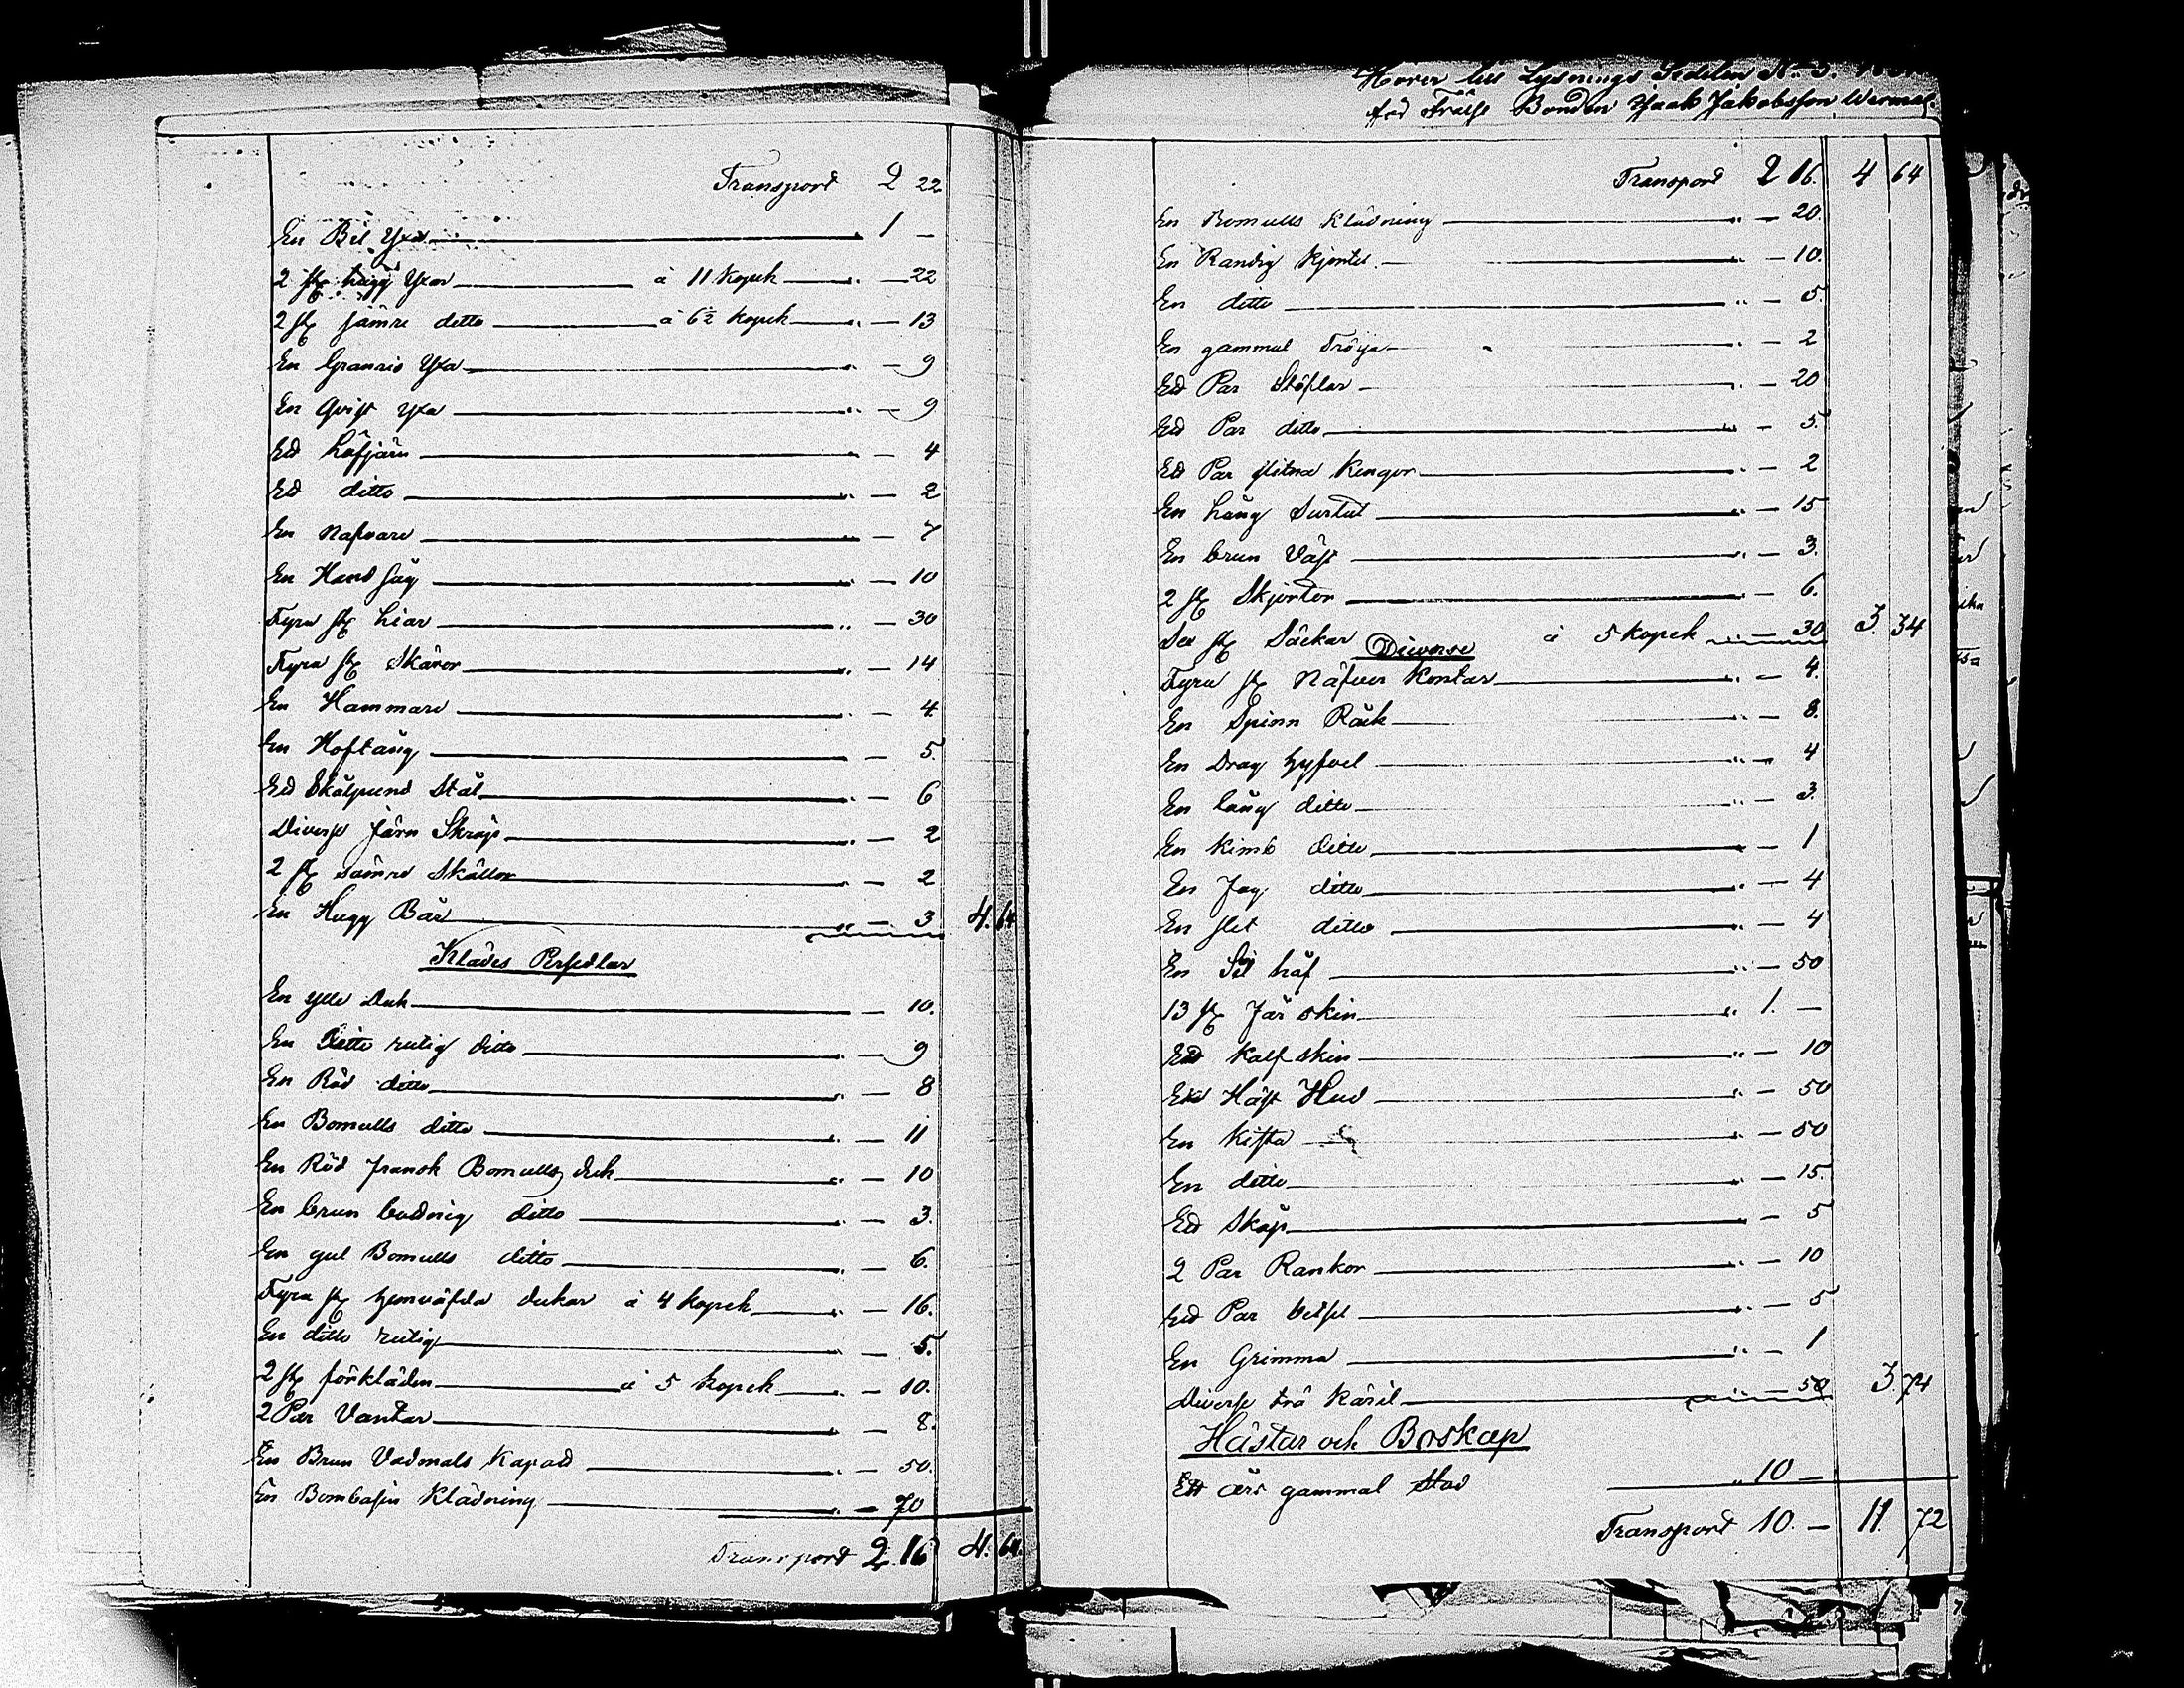 Transport 2 22
En Bil Yxa 1 –
2 st hugg Yxor à 11 Kopek " – 22
2 st sämre ditto à 6½ Kopek " – 13
En Granris Yxa " – 9
En Qvist Yxa " – 9
Ett Löfjärn " – 4
Ett ditto " – 2
En Nafvare " – 7
En Hand såg " – 10
Fyra st Liar " – 30
Fyra st Skäror " – 14
En Hammare " – 4
En Hoftång " – 5.
Ett Skålpund Stål " – 6
Diverse Järn Skrap " – 2
2 st sämre Skällor " – 2
En Hugg Bår " – 3 4. 64
Klädes Persedlar
En ylle Duk " – 10.
En Ditto rutig ditto " – 9
En Röd ditto " – 8
En Bomulls ditto " – 11
En Röd fransk Bomulls duk " – 10
En brun ditto " – 3.
En gul Bomulls ditto " – 6.
Fyra st hemväfda dukar à 4 kopek " – 16.
En ditto rutig " – 5.
2 st förkläden à 5 kopek " – 10.
2 Par Vantar " – 8.
En Brun Vadmals Kapott " – 50.
En Bombasin Klädning " – 70
Transport 2. 16 4. 64.
Hörer till Lysnings Sedelen No 3.
Bonden Isaak Jakobsson
Transport 2 16. 4 64
En Bomulls Klädning " – 20
En Randig Kjortel " – 10.
En ditto " – 5.
En gammal Tröija " – 2
Ett Par Stöflar " – 20
Ett Par ditto " – 5.
Ett Par slitna Kengor " – 2
En Lång Surtut " – 15
En brun Väst " – 3.
2 st Skjortor " – 6.
Sex st Säckar à 5 kopek " – 30 3. 34
Diverse
Fyra st Näfver Kontar " – 4.
En Spinn Råck " – 8.
En Drag Hyfvel " – 4
En lång ditto " – 3.
En Kimb ditto " – 1
En Fog ditto " – 4
En slet ditto " – 4
En håf " – 50
13 st Får skin " 1. –
Ett Kalfskin " – 10
Häst Hud " – 50
En Kista " – 50
En ditto " – 15.
Ett Skåp " – 5
2 Par Rankor " – 10
Ett Par betsel " – 5
En Grimma " – 1
Diverse trä Käril " – 50 3 74
Hästar och Boskap
Ett års gammal Stod " 10 –
Transport 10. – 11. 72